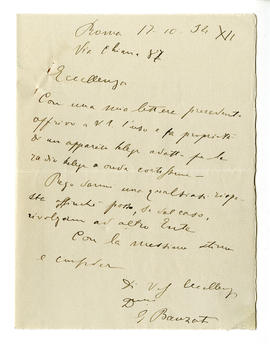 Roma 17.10.34 XII
Via Chiana 87
Eccellenza
Con una mia lettera precedente
offrivo a V.E. l'uso e la proprietà
di un apparecchio adatto per la
radio a onda cortissima
Prego darmi una qualsiasi rispo-
sta affinché possa, se del caso,
rivolgermi ad altro Ente
Con la massima stima
e
Di V.
G.